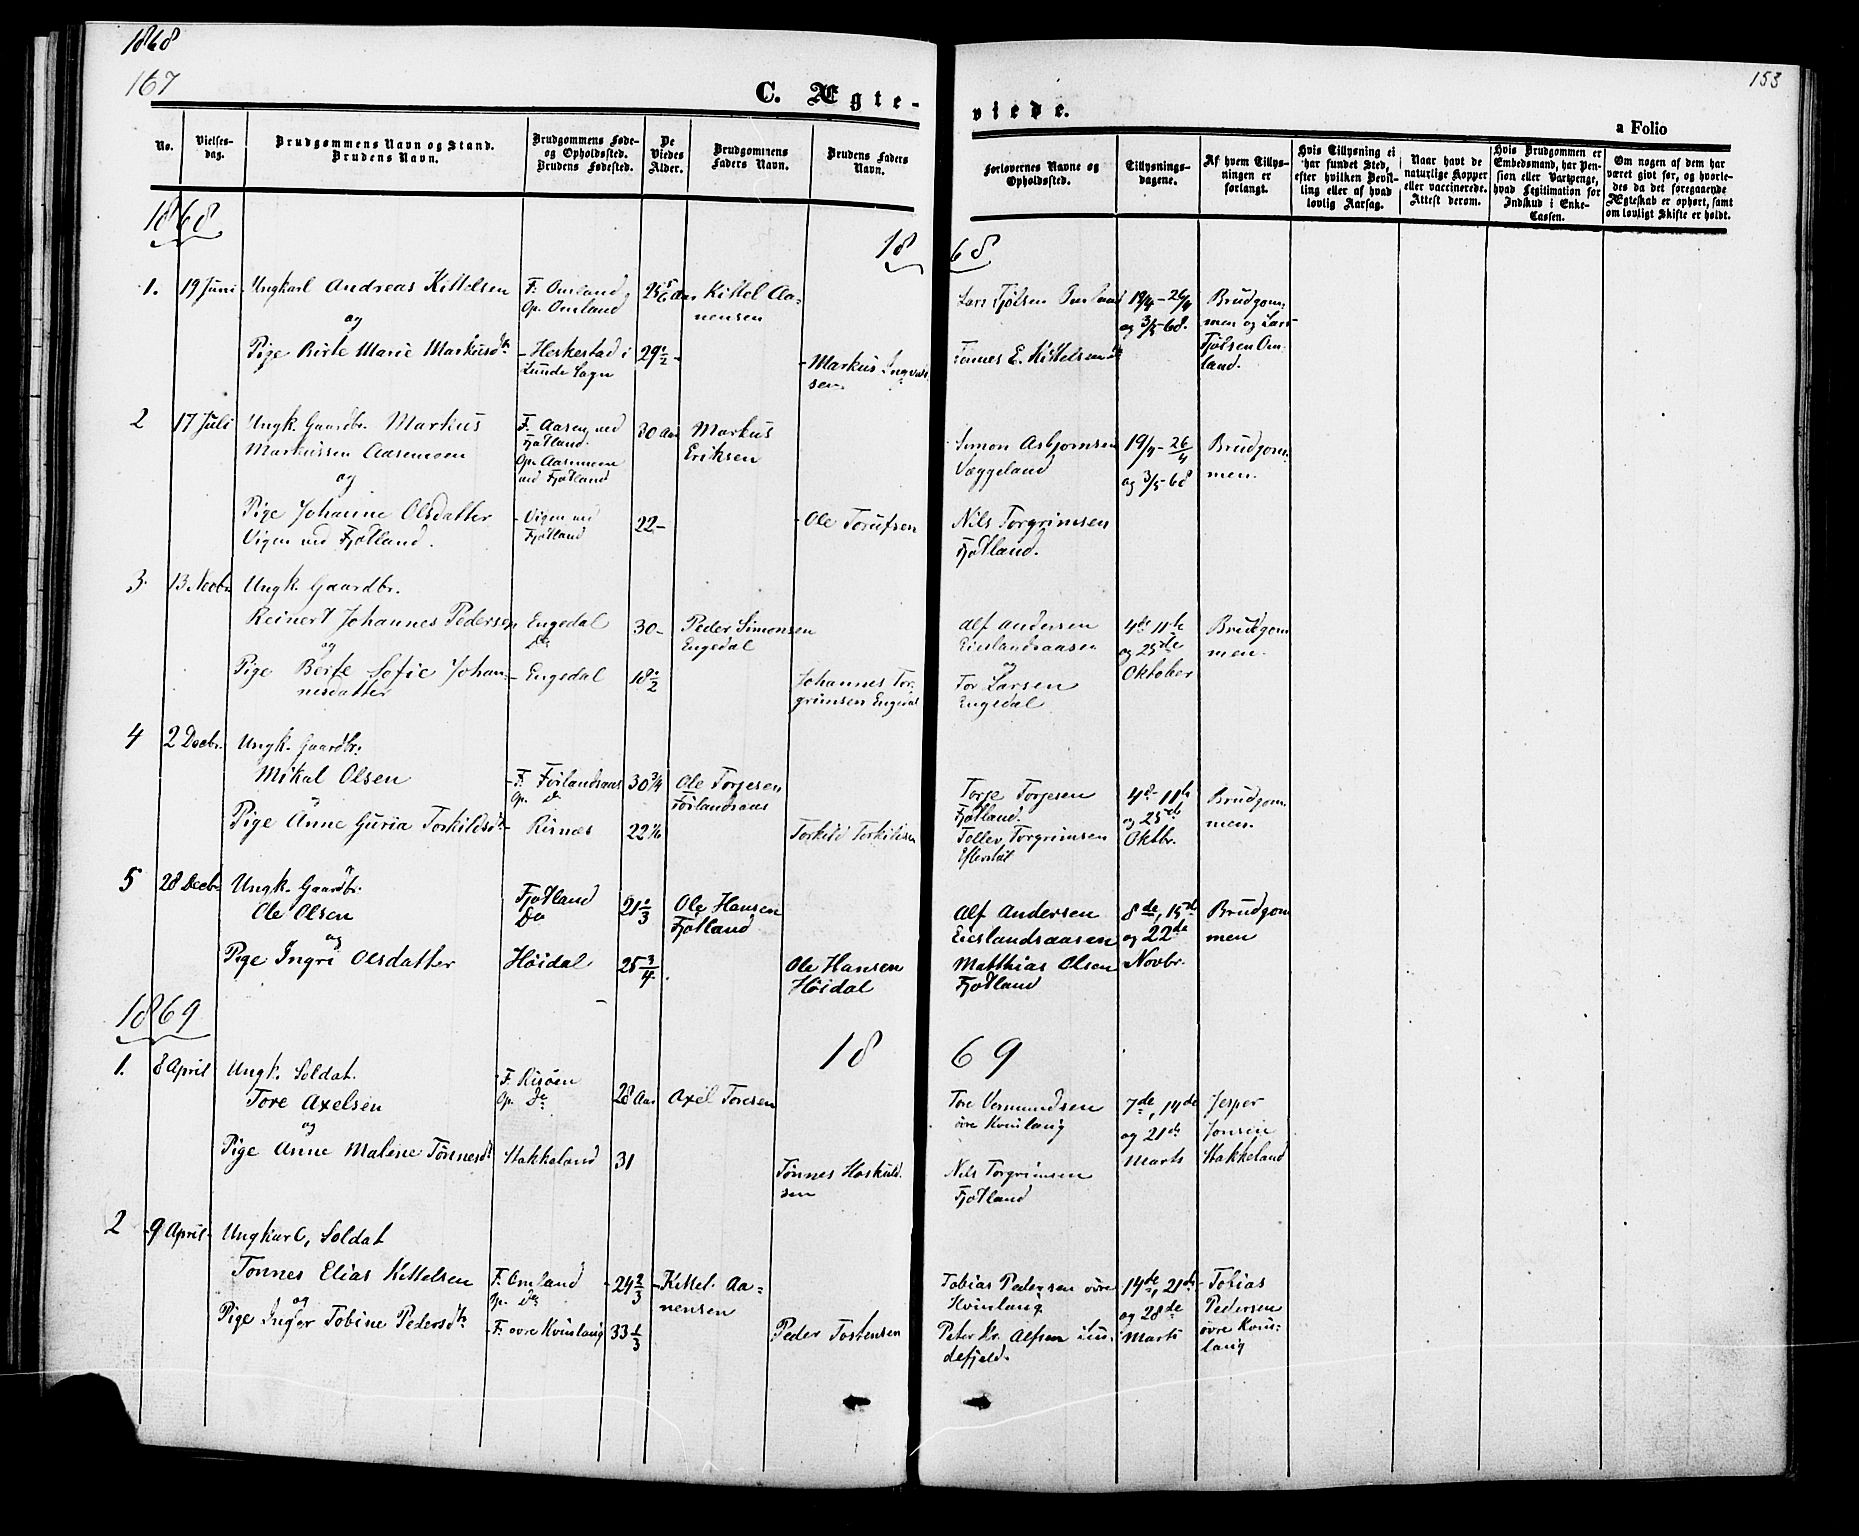 1868
167
153
C. Ægte-
viede.
a Folio
No.
Vielses-
dag.
Brudgommens Navn og Stand.
Brudens Navn.
Brudgommens Føde-
og Opholdssted.
Brudens Fødested.
De
Viedes
Alder.
Brudgommens
Faders Navn.
Brudens Faders
Navn.
Forlovernes Navne og
Opholdssted.
Tillysnings-
dagene.
Af hvem Tillys-
ningen er
forlangt.
Hvis Tillysning ei
har fundet Sted,
efter hvilken Bevil-
ling eller af hvad
lovlig Aarsag.
Naar havt de
naturlige Kopper
eller vaccinerede.
Attest derom.
Hvis Brudgommen er
Embedsmand, har Pen-
sion eller Vartpenge,
hvad Legitimation for
Indskud i Enke-
Cassen.
Om nogen af dem har
været givt før, og hvorle-
des da det foregaaende
Ægteskab er ophørt, samt
om lovligt Skifte er holdt.
1868
18 68
1. 19 Juni Ungkarl Andreas Kittelsen
og
Pige Birte Marie Markusdtr
F. Omland,
Op. Omland
- Heskestad i
Lunde Sogn
25 5/6 Aar
29 1/2 -
Kittel Aa-
nensen
- Markus Ingvald
sen
Lars Tjølsen Omland
Tønnes E. Kittelsen
19/4 - 26/4
og 3/5 - 68.
Brudgom-
men og Lars
Tjølsen Om-
land.
2 17 Juli Ungk. Gaardbr. Martius
Markussen Aasemoen
og
Pige Johanne Olsdatter
Vigen ved Fjotland.
F. Aasen ved
Fjotland.
Op. Aasemoen
ved Fjotland
- Vigen ved
Fjotland
30 Aar
22 -
Markus
Eriksen
- Ole Torufsen
Simon Asbjornsen
Væggeland
Nils Torgrimsen
Fjotland.
19/4 - 26/4
og 3/5 - 68
Brudgom-
men.
3. 13 Novbr. Ungk. Gaardbr.
Reinert Johannes Pedersen
og
Pige Berte Sofie Johan-
nesdatter
Engedal
Do
- Engedal
30 -
18 1/2
Peder Simonsen
Engedal
Johannes Tor-
grimsen Engedal
Alf Andersen
Eieslandsaasen
og
Tor Larsen
Engedal
4de 11te
og 25de
Oktober
Brudgom
men.
4 2 Decbr. Ungk. Gaardbr.
Mikal Olsen
Pige Anne Guria Torkildsdtr
- F. Førlandsaas
Op. do
- Risnæs
30 3/4
22 1/6
Ole Torjesen
Førlandsaas
Torkild Torkildsen
Torje Torjesen
Fjotland.
Tollev Torgrimsen
Eftestøl
4de - 11te
og 25de
Oktbr.
Brudgom
men.
5 28 Decbr. Ungk. Gaardbr.
Ole Olsen
og
Pige Ingri Olsdatter
Fjotland
Do
Høidal
21 1/3
25 3/4.
Ole Hansen
Fjotland
Ole Hansen
Høidal
Alf Andersen
Eieslandsaasen
Matthias Olsen
Fjotland
8de, 15de
og 22de
Novbr.
Brudgom
men
1869
18 69
1. 8 April Ungk. Soldat.
Tore Axelsen
og
Pige Anne Malene Tønnesdtr
F. Risøen
Op. Do
Stakkeland
28 Aar
31
Axel Toresen
Tønnes Hoskuld-
sen
Tore Vermundsen
øvre Kvinlaug
Nils Torgrimsen
Fjotland
7de, 14de
og 21de
Marts
Jesper
Jonsen
Stakkeland
2 9 April Ungkarl, Soldat
Tønnes Elias Kittelsen
og
Pige Inger Tobine Pedersdtr
F. Omland
Op. Do
- F. øvre Kvinlaug
24 2/3
33 1/3
- Kittel Aa-
nensen
Peder Tostensen
Tobias Pedersen øvre
Kvinlaug
Peter Kr. Alfsen Lin-
defjeld.
14de, 21de
og 28de
Marts
Tobias
Pedersen
øvre Kvin-
laug